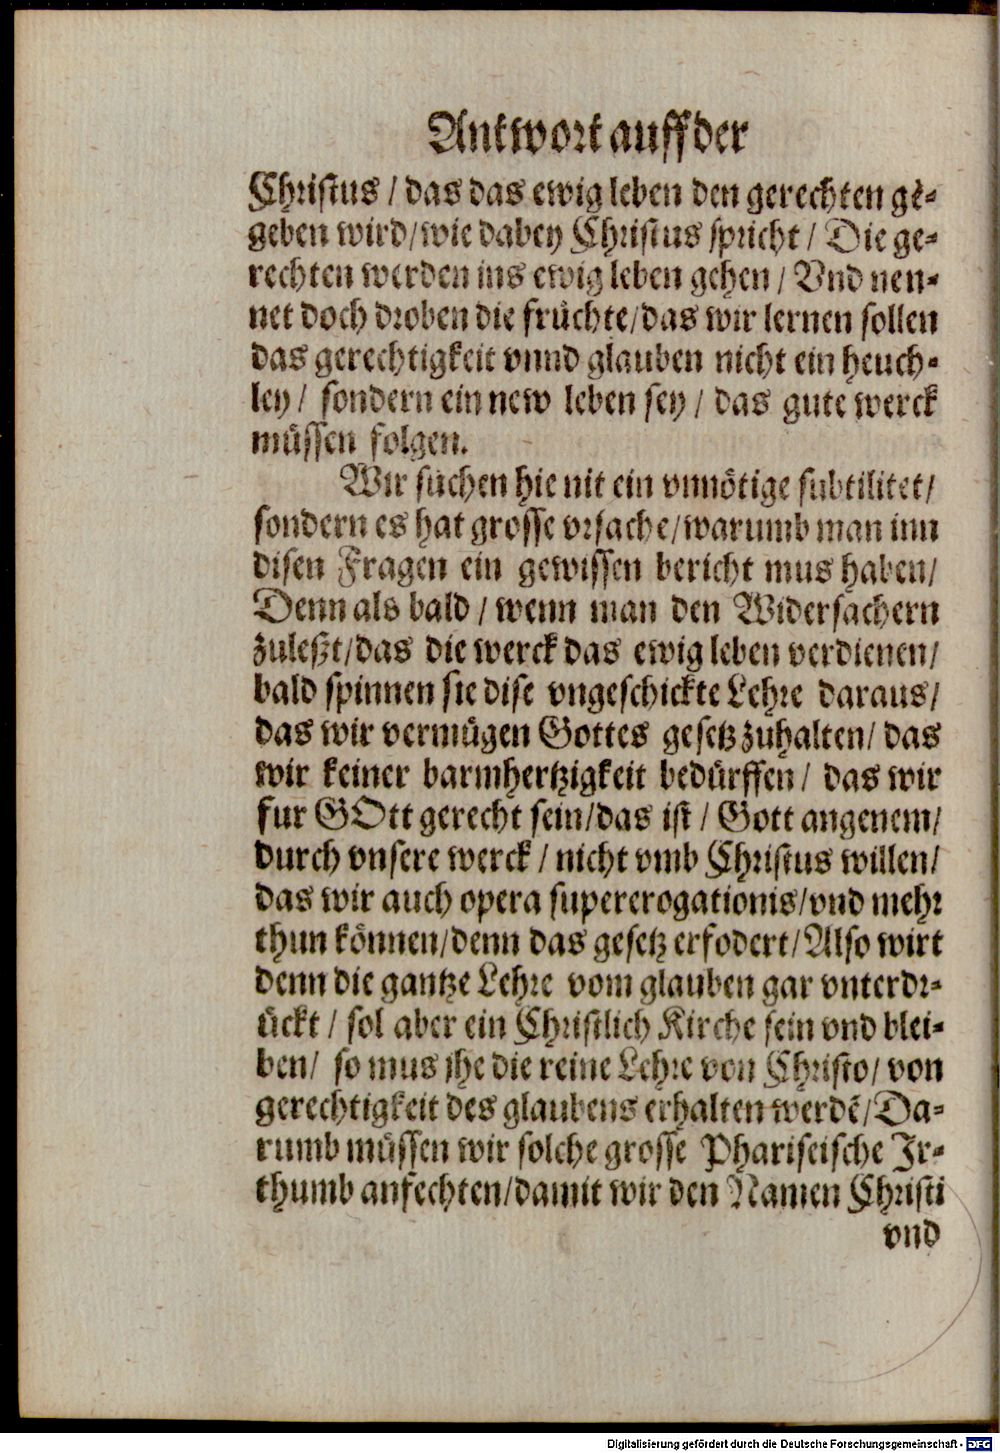 Antwort auff der
Christus / das das ewig leben den gerechten ge-
geben wird/wie dabey Christus spricht / Die ge-
rechten werden ins ewig leben gehen / Vnd nen-
net doch droben die früchte/das wir lernen sollen
das gerechtigkeit vnnd glauben nicht ein heuch-
ley / sondern ein new leben sey / das gute werck
müssen folgen.
Wir suchen hie nit ein vnnötige subtilitet/
sondern es hat grosse vrsache/warumb man inn
disen Fragen ein gewissen bericht mus haben/
Denn als bald / wenn man den Widersachern
zuleßt/das die werck das ewig leben verdienen/
bald spinnen sie dise vngeschickte Lehre daraus/
das wir vermügen Gottes gesetz zuhalten/ das
wir keiner barmhertzigkeit bedürffen / das wir
fur GOtt gerecht sein/das ist / Gott angenem/
durch vnsere werck / nicht vmb Christus willen/
das wir auch opera supererogationis/vnd mehr
thun können/denn das gesetz erfodert/Also wirt
denn die gantze Lehre vom glauben gar vnterdr-
ückt / sol aber ein Christlich Kirche sein vnd blei-
ben/ so mus jhe die reine Lehre von Christo/ von
gerechtigkeit des glaubens erhalten werdē/Da-
rumb müssen wir solche grosse Phariseische Jr-
thumb anfechten/damit wir den Namen Christi
vnd
Digitalisierung gefördert durch die Deutsche Forschungsgemeinschaft - DFG